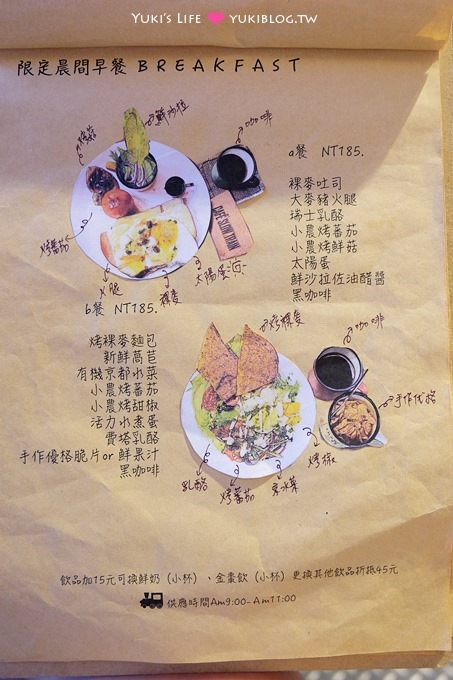 YUKI'S LIFE YUKIBLOG.TW
限定晨間早餐 BREAKFAST
烤菇
鮮沙拉
咖啡
a餐 NT185.
裸麥吐司
大麥豬火腿
瑞士乳酪
小農烤蕃茄
小農烤鮮菇
太陽蛋
鮮沙拉佐油醋醬
黑咖啡
烤蕃茄
火腿
裸麥
太陽蛋
b餐 NT185.
烤裸麥麵包
新鮮萵苣
有機京都水菜
小農烤蕃茄
小農烤甜椒
活力水煮蛋
費塔乳酪
手作優格脆片or鮮果汁
黑咖啡
烤裸麥
咖啡
手作優格
烤椒
京水菜
烤蕃茄
乳酪
飲品加15元可換鮮奶（小杯）、金棗飲（小杯）更換其他飲品折抵45元
供應時間Am9:00-Am11:00